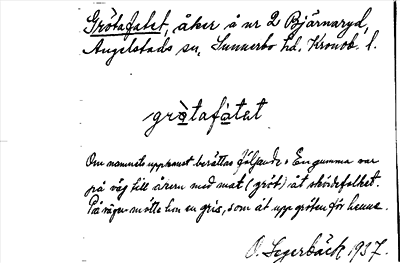 Grötafatet, åker å nr 2 Bjärnaryd,
Angelstads sn, Sunnerbo hd. Kronob. l.
grötafatet
Om namnets uppkomst berättas följande: En gumma var
på väg till åkern med mat (gröt) åt skördefolket.
På vägen mötte hon en gris, som åt upp gröten för henne.
O. Segerbäck 1937.